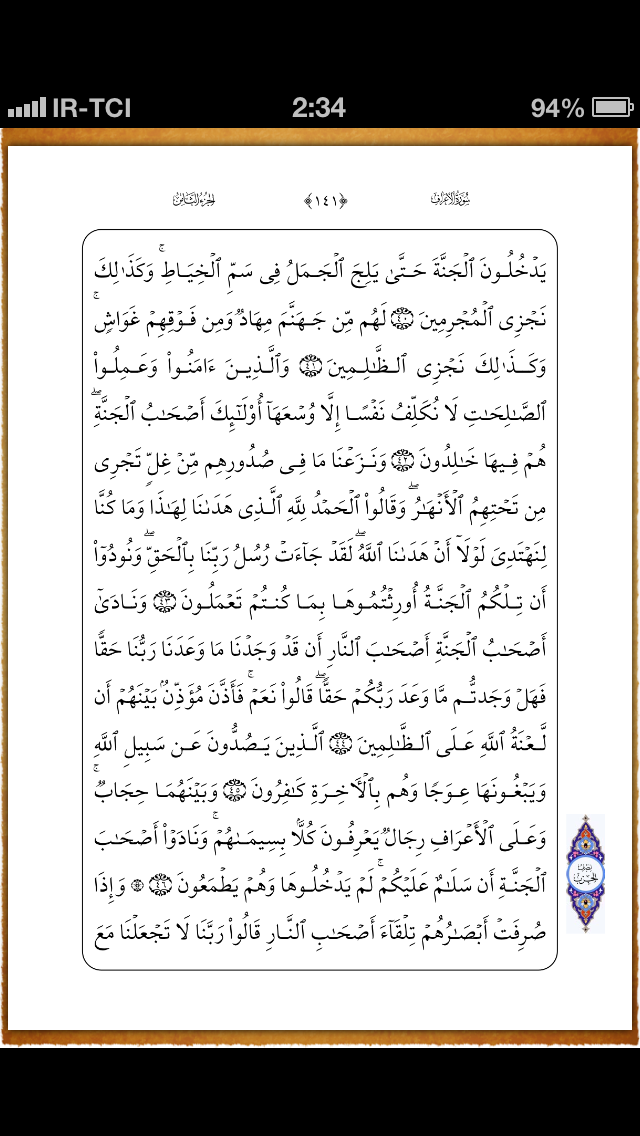 IR-TCI 2:34 94%
سُورَةُ الأَعۡرَافِ ﴿١٤١﴾ الجُزءُ الثَّامِنُ
يَدۡخُلُونَ ٱلۡجَنَّةَ حَتَّىٰ يَلِجَ ٱلۡجَمَلُ فِى سَمِّ ٱلۡخِيَاطِۚ وَكَذَٰلِكَ
نَجۡزِى ٱلۡمُجۡرِمِينَ ٤٠ لَهُم مِّن جَهَنَّمَ مِهَادٌ وَمِن فَوۡقِهِمۡ غَوَاشٍۚ
وَكَذَٰلِكَ نَجۡزِى ٱلظَّٰلِمِينَ ٤١ وَٱلَّذِينَ ءَامَنُواْ وَعَمِلُواْ
ٱلصَّٰلِحَٰتِ لَا نُكَلِّفُ نَفۡسًا إِلَّا وُسۡعَهَآ أُوْلَٰٓئِكَ أَصۡحَٰبُ ٱلۡجَنَّةِۖ
هُمۡ فِيهَا خَٰلِدُونَ ٤٢ وَنَزَعۡنَا مَا فِى صُدُورِهِم مِّنۡ غِلٍّ تَجۡرِى
مِن تَحۡتِهِمُ ٱلۡأَنۡهَٰرُۖ وَقَالُواْ ٱلۡحَمۡدُ لِلَّهِ ٱلَّذِى هَدَىٰنَا لِهَٰذَا وَمَا كُنَّا
لِنَهۡتَدِىَ لَوۡلَآ أَنۡ هَدَىٰنَا ٱللَّهُۖ لَقَدۡ جَآءَتۡ رُسُلُ رَبِّنَا بِٱلۡحَقِّۖ وَنُودُوٓاْ
أَن تِلۡكُمُ ٱلۡجَنَّةُ أُورِثۡتُمُوهَا بِمَا كُنتُمۡ تَعۡمَلُونَ ٤٣ وَنَادَىٰٓ
أَصۡحَٰبُ ٱلۡجَنَّةِ أَصۡحَٰبَ ٱلنَّارِ أَن قَدۡ وَجَدۡنَا مَا وَعَدَنَا رَبُّنَا حَقًّا
فَهَلۡ وَجَدتُّم مَّا وَعَدَ رَبُّكُمۡ حَقًّاۖ قَالُواْ نَعَمۡۚ فَأَذَّنَ مُؤَذِّنٌۢ بَيۡنَهُمۡ أَن
لَّعۡنَةُ ٱللَّهِ عَلَى ٱلظَّٰلِمِينَ ٤٤ ٱلَّذِينَ يَصُدُّونَ عَن سَبِيلِ ٱللَّهِ
وَيَبۡغُونَهَا عِوَجًا وَهُم بِٱلۡأٓخِرَةِ كَٰفِرُونَ ٤٥ وَبَيۡنَهُمَا حِجَابٌۚ
وَعَلَى ٱلۡأَعۡرَافِ رِجَالٌ يَعۡرِفُونَ كُلَّۢا بِسِيمَىٰهُمۡۚ وَنَادَوۡاْ أَصۡحَٰبَ
ٱلۡجَنَّةِ أَن سَلَٰمٌ عَلَيۡكُمۡۚ لَمۡ يَدۡخُلُوهَا وَهُمۡ يَطۡمَعُونَ ٤٦ ۞ وَإِذَا
صُرِفَتۡ أَبۡصَٰرُهُمۡ تِلۡقَآءَ أَصۡحَٰبِ ٱلنَّارِ قَالُواْ رَبَّنَا لَا تَجۡعَلۡنَا مَعَ
نصف
الحزب